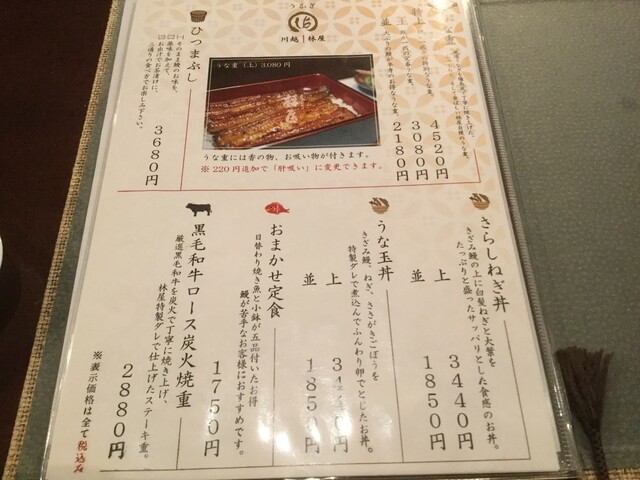 うなぎ
川越 林屋
特上
4520円
上
3080円
並
2180円
うな重（上）3,080円
うな重には香の物、お吸い物が付きます。
※220円追加で「肝吸い」に変更できます。
ひつまぶし
そのまま鰻のお味を、
薬味を加えて、
お出汁でお茶漬けに、
三通りの食べ方でお楽しみ下さい。
3680円
さらしねぎ丼
きざみ鰻の上に白髪ねぎと大葉を
たっぷりと盛ったサッパリとした食感のお丼。
上 3440円
並 1850円
うな玉丼
きざみ鰻、ねぎ、ささがきごぼうを
特製ダレで煮込んでふんわり卵でとじたお丼。
上
並 1850円
おまかせ定食
日替わり焼き魚と小鉢が五品付いたお得
鰻が苦手なお客様におすすめです。
1750円
黒毛和牛ロース炭火焼重
厳選黒毛和牛を炭火で丁寧に焼き上げ、
林屋特製ダレで仕上げたステーキ重。
2880円
※表示価格は全て税込み